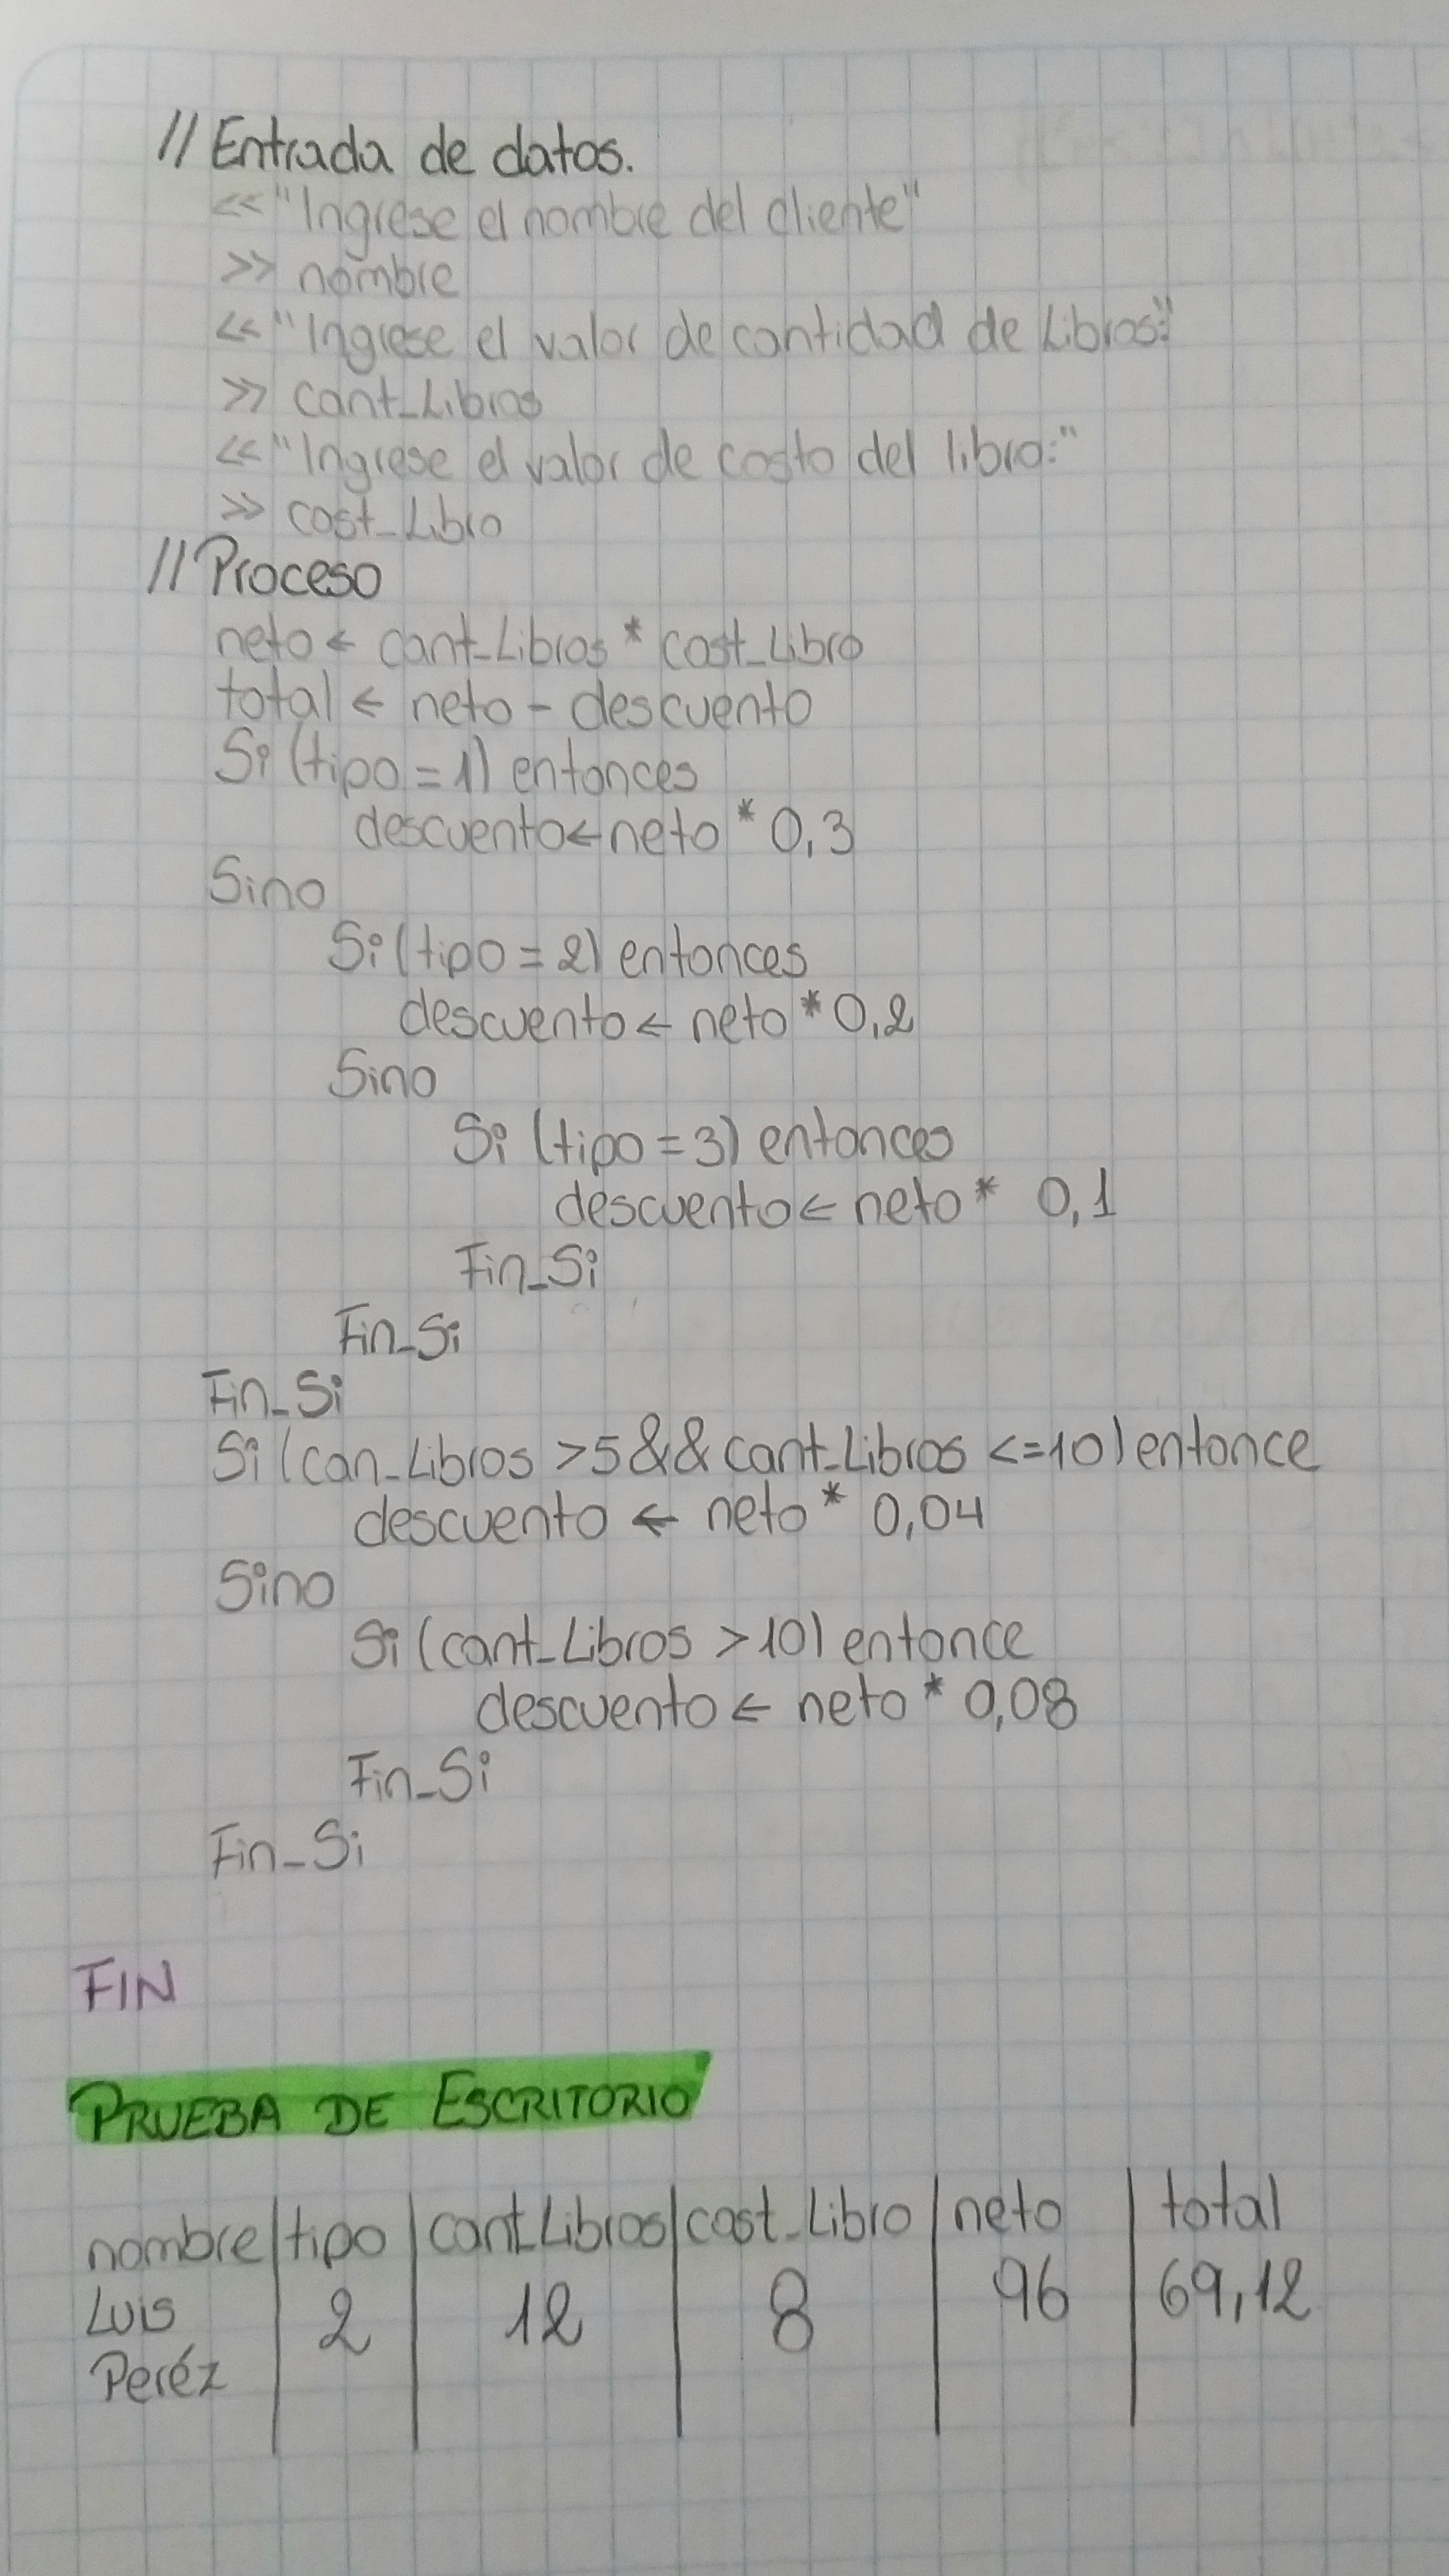 // Entrada de datos.
<< "Ingrese el nombre del cliente"
>> nombre
<< "Ingrese el valor de cantidad de Libros:"
>> cant_Libros
<< "Ingrese el valor de costo del libro:"
>> cost_Libro
// Proceso
neto ← cant_Libros * cost_Libro
total ← neto - descuento
Si (tipo = 1) entonces
descuento ← neto * 0,3
Sino
Si (tipo = 2) entonces
descuento ← neto * 0,2
Sino
Si (tipo = 3) entonces
descuento ← neto * 0,1
Fin_Si
Fin_Si
Fin_Si
Si (can_Libros >5 && cant_Libros <=10) entonce
descuento ← neto * 0,04
Sino
Si (cant_Libros >10) entonce
descuento ← neto * 0,08
Fin_Si
Fin_Si
FIN
PRUEBA DE ESCRITORIO
nombre | tipo | cant_Libros | cost_Libro | neto | total
Luis | 2 | 12 | 8 | 96 | 69,12
Peréz